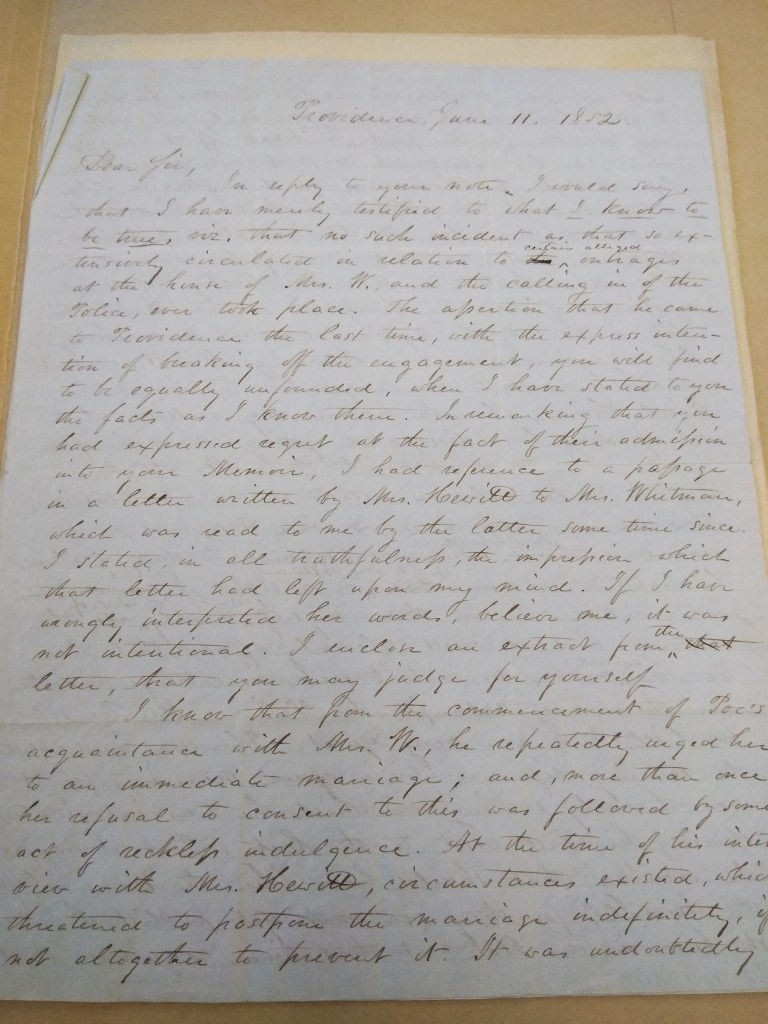 Providence, June 11. 1852.
Dear Sir,
In reply to your note, I would say,
that I have merely testified to what I know to
be true, viz. that no such incident as that so ex-
tensively circulated in relation to certain alleged outrages
at the house of Mrs. W., and the calling in of the
Police, ever took place. The assertion that he came
to Providence the last time, with the express inten-
tion of breaking off the engagement, you will find
to be equally unfounded, when I have stated to you
the facts as I know them. In remarking that you
had expressed regret at the fact of their admission
into your Memoir, I had reference to a passage
in a letter written by Mrs. Hewitt to Mrs. Whitman,
which was read to me by the latter some time since.
I stated, in all truthfulness, the impression which
that letter had left upon my mind. If I have
wrongly interpreted her words, believe me, it was
not intentional. I enclose an extract from the that
letter, that you may judge for yourself
I know that from the commencement of Poe's
acquaintance with Mrs. W., he repeatedly urged her
to an immediate marriage; and, more than once
her refusal to consent to this was followed by some
act of reckless indulgence. At the time of his inter
view with Mrs. Hewitt, circumstances existed, whic
threatened to postpone the marriage indefinitely, if
not altogether to prevent it. It was undoubtedly